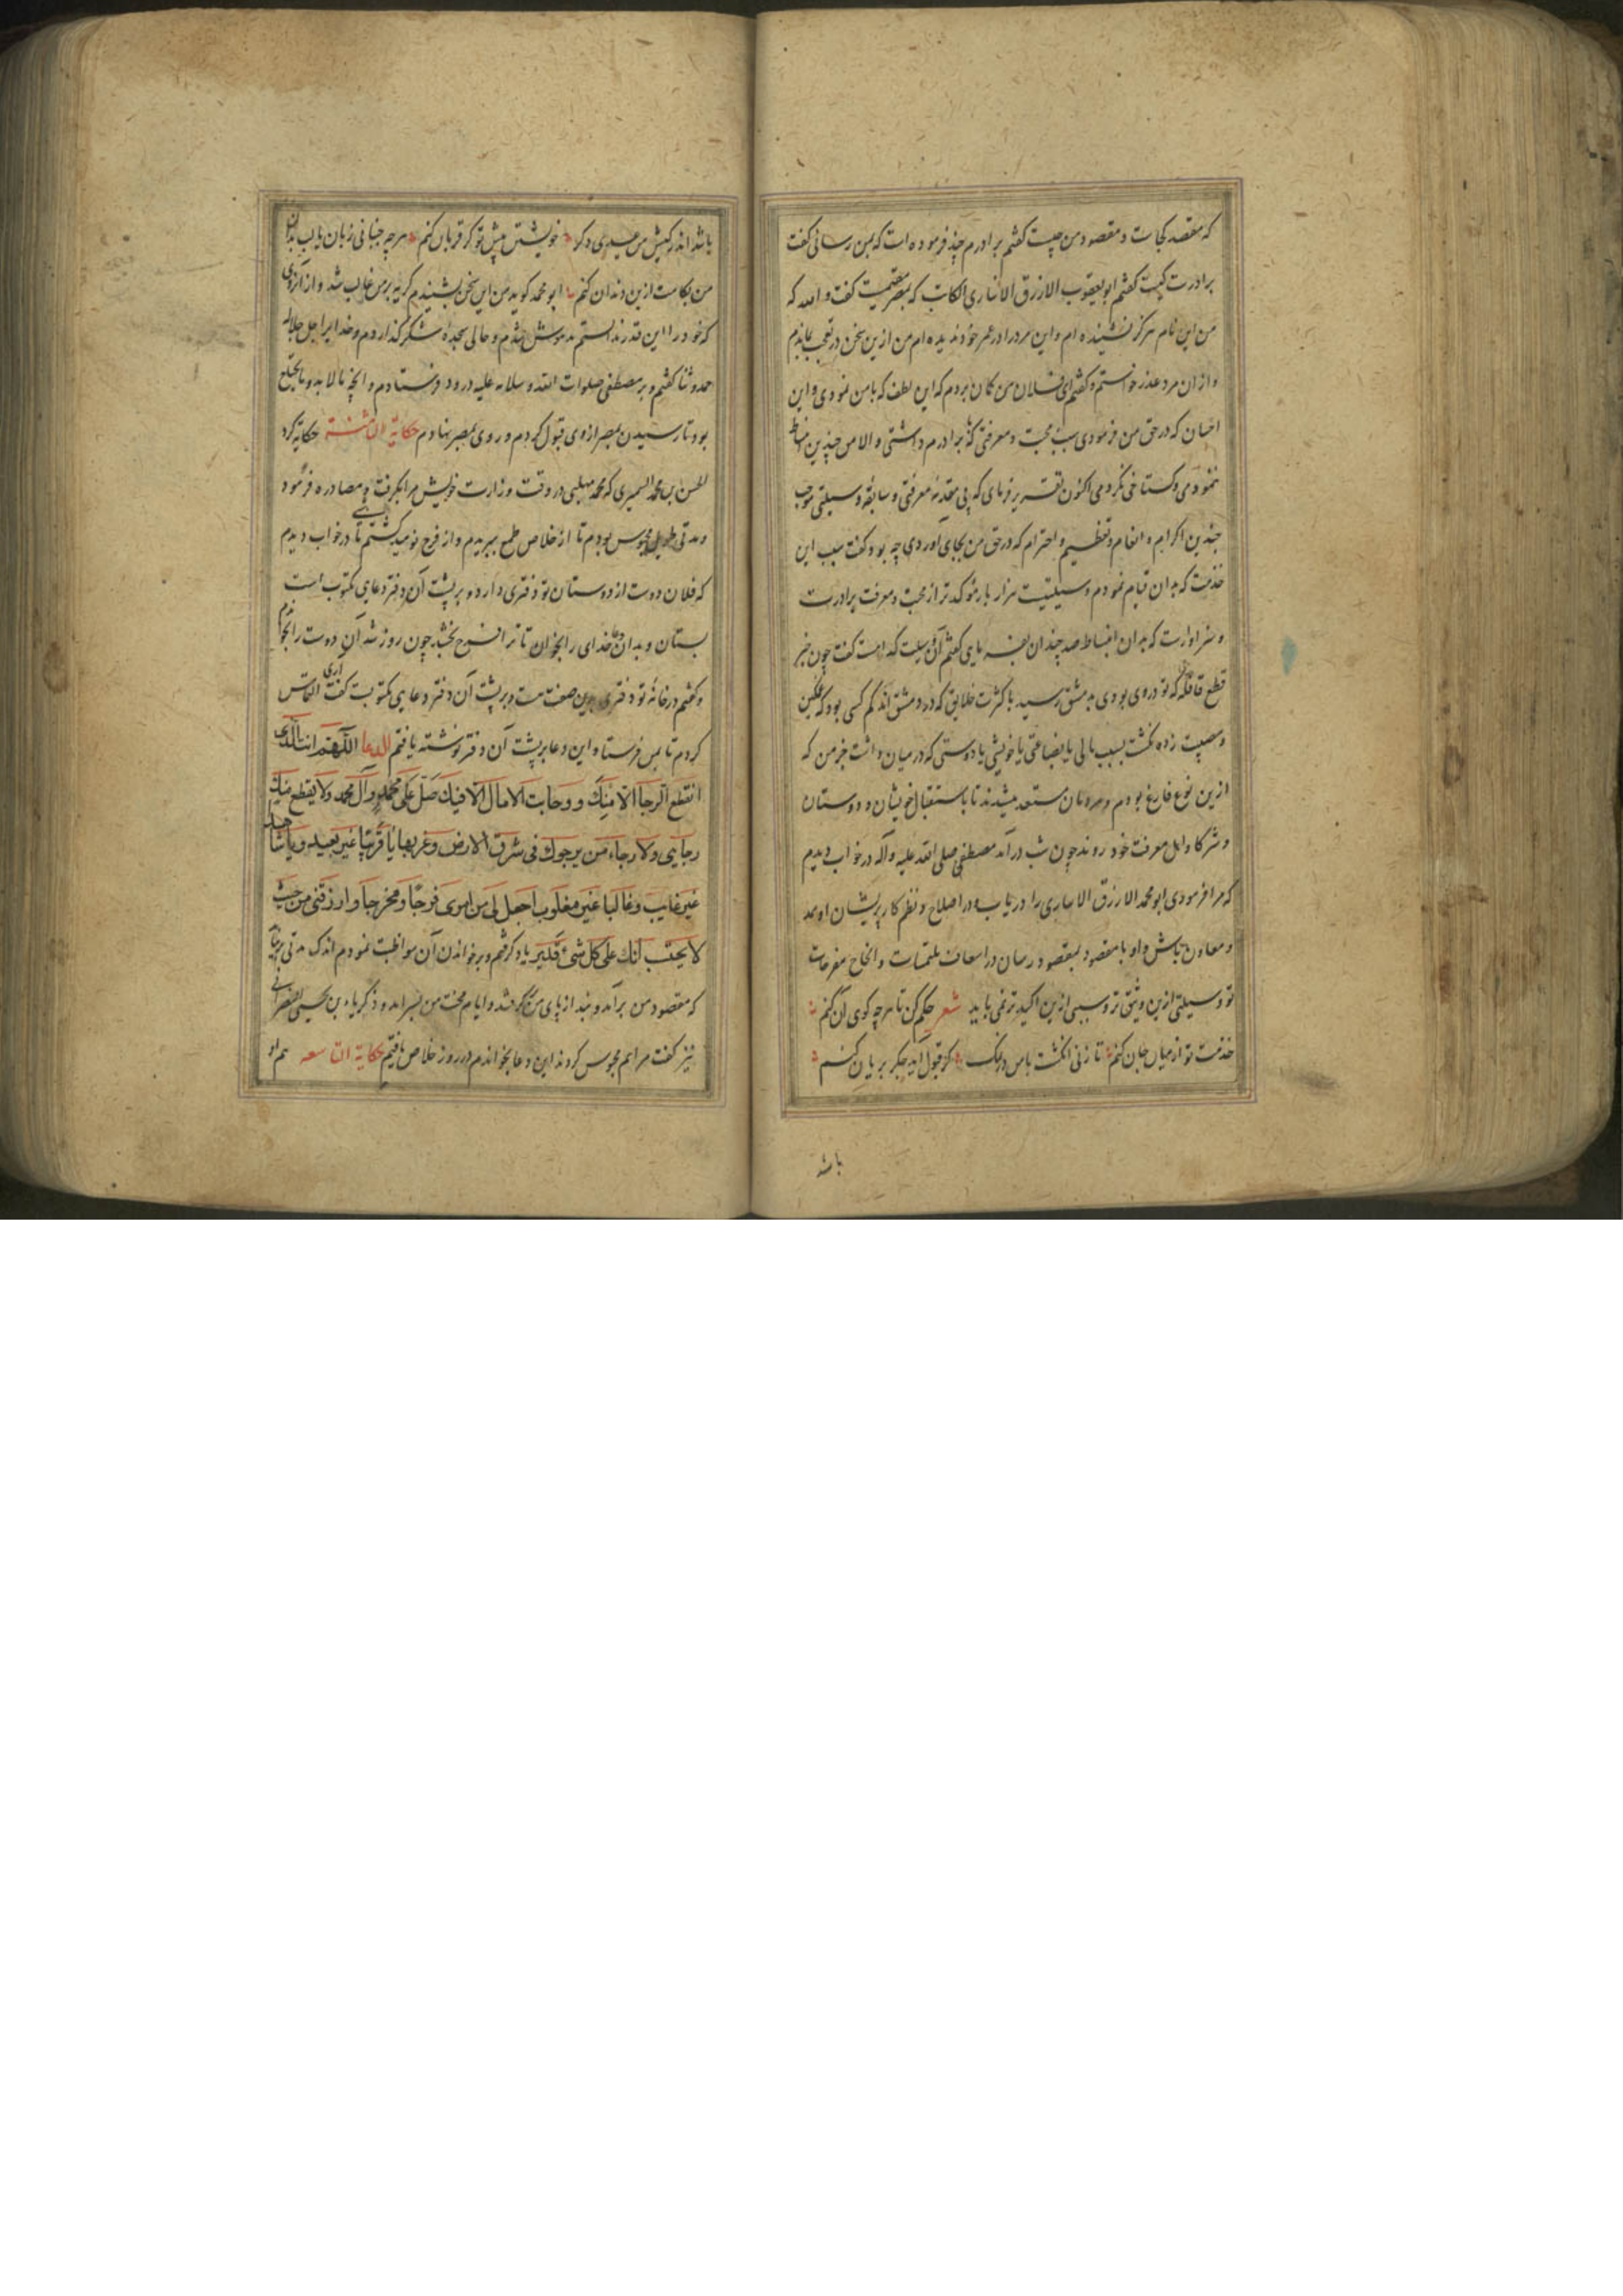 که مقصد کجاست و مقصود من چیست گفتم برادرم چیز فرموده است که بمن رسانی گفت
برادرت کیست گفتم ابو یعقوب الازرق الانباری الکاتب که بمصر مقیمست گفت والله که
من این نام هرگز نشنیده ام و این مرد را در عمر خود ندیده ام من ازین سخن در تعجب بماندم
و از ان مرد عذر خواستم و گفتم ای فلان من کمان بردم که این لطف که با من نمودی و این
احسان که در حق من فرمودی سبب محبت و معرفتی که با برادرم داشتی و الا من چندین انبساط
ننمودمی و کستاخی نکردمی اکنون تقریر فرمای که بی مقدمه معرفتی و سابقه وسیلتی موجب
چندین اکرام و انعام و تعظیم و احترام که در حق من بجای آوردی چه بود گفت سبب این
خدمت که بدان قیام نمودم وسیلتیست هزار بار مؤکد تر از محبت و معرفت برادرت
و سزاوارست که بدان انبساط صد چندان بفرمایی گفتم آن وسیلت کدامست گفت چون خبر
قطع قافله که تو در وی بودی بدمشق رسید با کثرت خلایق که در دمشق اند کم کسی بود که غمکین
و مصیبت زده نکشت بسبب مالی یا بضاعتی یا خویشی یا دوستی که در میان داشت بجز من که
ازین نوع فارغ بودم و مردمان مستعد میشدند تا باستقبال خویشان و دوستان
و شرکا و اهل معرفت خود روند چون شب درآمد مصطفی صلی الله علیه و آله در خواب دیدم
که مرا فرمودی ابو محمد الازرق الانباری را دریاب و در اصلاح و نظم کار پریشان او ممد
و معاون باش و او را بمقصد و بمقصود رسان در اسعاف ملتمسات و انجاح مقترحات
تو وسیلتی ازین وثیق تر و سببی ازین اکید تر نمی باید شعر حکم کن تا هر چه کوی آن کنم
خدمت تو از میان جان کنم تا زنی انکشت باس در نمک کر قبول آید جکر بریان کنم
باشد
باشد اندر کیش من عیدی دکر خویشتن پیش تو کر قربان کنم هر چه جنبانی زبان یا لب بدان
من بکامت ازین دندان کنم ابو محمد کوید من این سخن بشنیدم کریه بر من غالب شد و از آرزوی
که خود را این قدر ندانستم مدهوش شدم و حالی سجده شکر کذاردم و خدایرا جل جلاله
حمد و ثنا گفتم و بر مصطفی صلوات الله و سلامه علیه درود فرستادم و انچه مالابد و مایحتاج
بود تا رسیدن بمصر از وی قبول کردم و روی بمصر نهادم حکایة الثامنة حکایة کرد
الحسن بن محمد السمیری که محمد مهلبی در وقت وزارت خویش مرا بکرفت و مصادره فرمود
و مدتی طویل محبوس بودم تا از خلاص طمع ببریدم و از فرج نومید کشتم تا شبی در خواب دیدم
که فلان دوست از دوستان تو دفتری دارد و بر پشت آن دفتر دعایی مکتوب است
بستان و بدان دعا خدای را بخوان تا ترا فرج بخشد چون روز شد آن دوست را بخواندم
و گفتم در خانه تو دفتری بدین صفت هست و بر پشت آن دفتر دعایی مکتوبست گفت آری التماس
کردم تا بمن فرستاد این دعا بر پشت آن دفتر نوشته یافتم الدعا اللهم انت الذی
انقطع الرجاء الا منک و وخابت الامال الا فیک صل علی محمد و آل محمد ولا یقطع منک
رجایی ولا رجاء من یرجوک فی شرق الارض و غربها یا قریبا غیر بعید و یا شاهدا
غیر غایب و غالبا غیر مغلوب اجعل لی من امری فرجا و مخرجا وارزقنی من حیث
لا یحتسب انک علی کل شیء قدیر یاد کرفتم و بر خواندن آن مواظبت نمودم اندک مدتی برنیامد
که مقصود من برآمد و بند از پای من بر کرفتند و ایام محنت من بسر آمد و ذکریاء بن یحیی نصرانی
نیز گفت مرا هم محبوس کردند این دعا بخواندم در روز خلاص یافتم حکایة التاسعه هم او